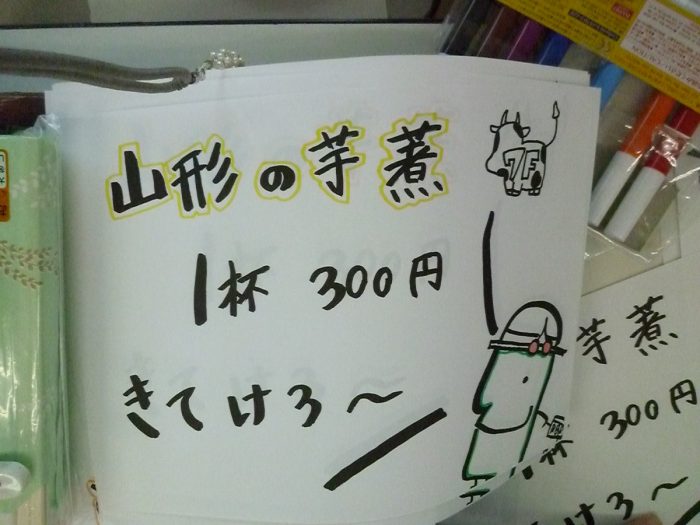 山形の芋煮
7F
1杯 300円
きてけろ〜
芋煮
杯 300円
てけろ〜